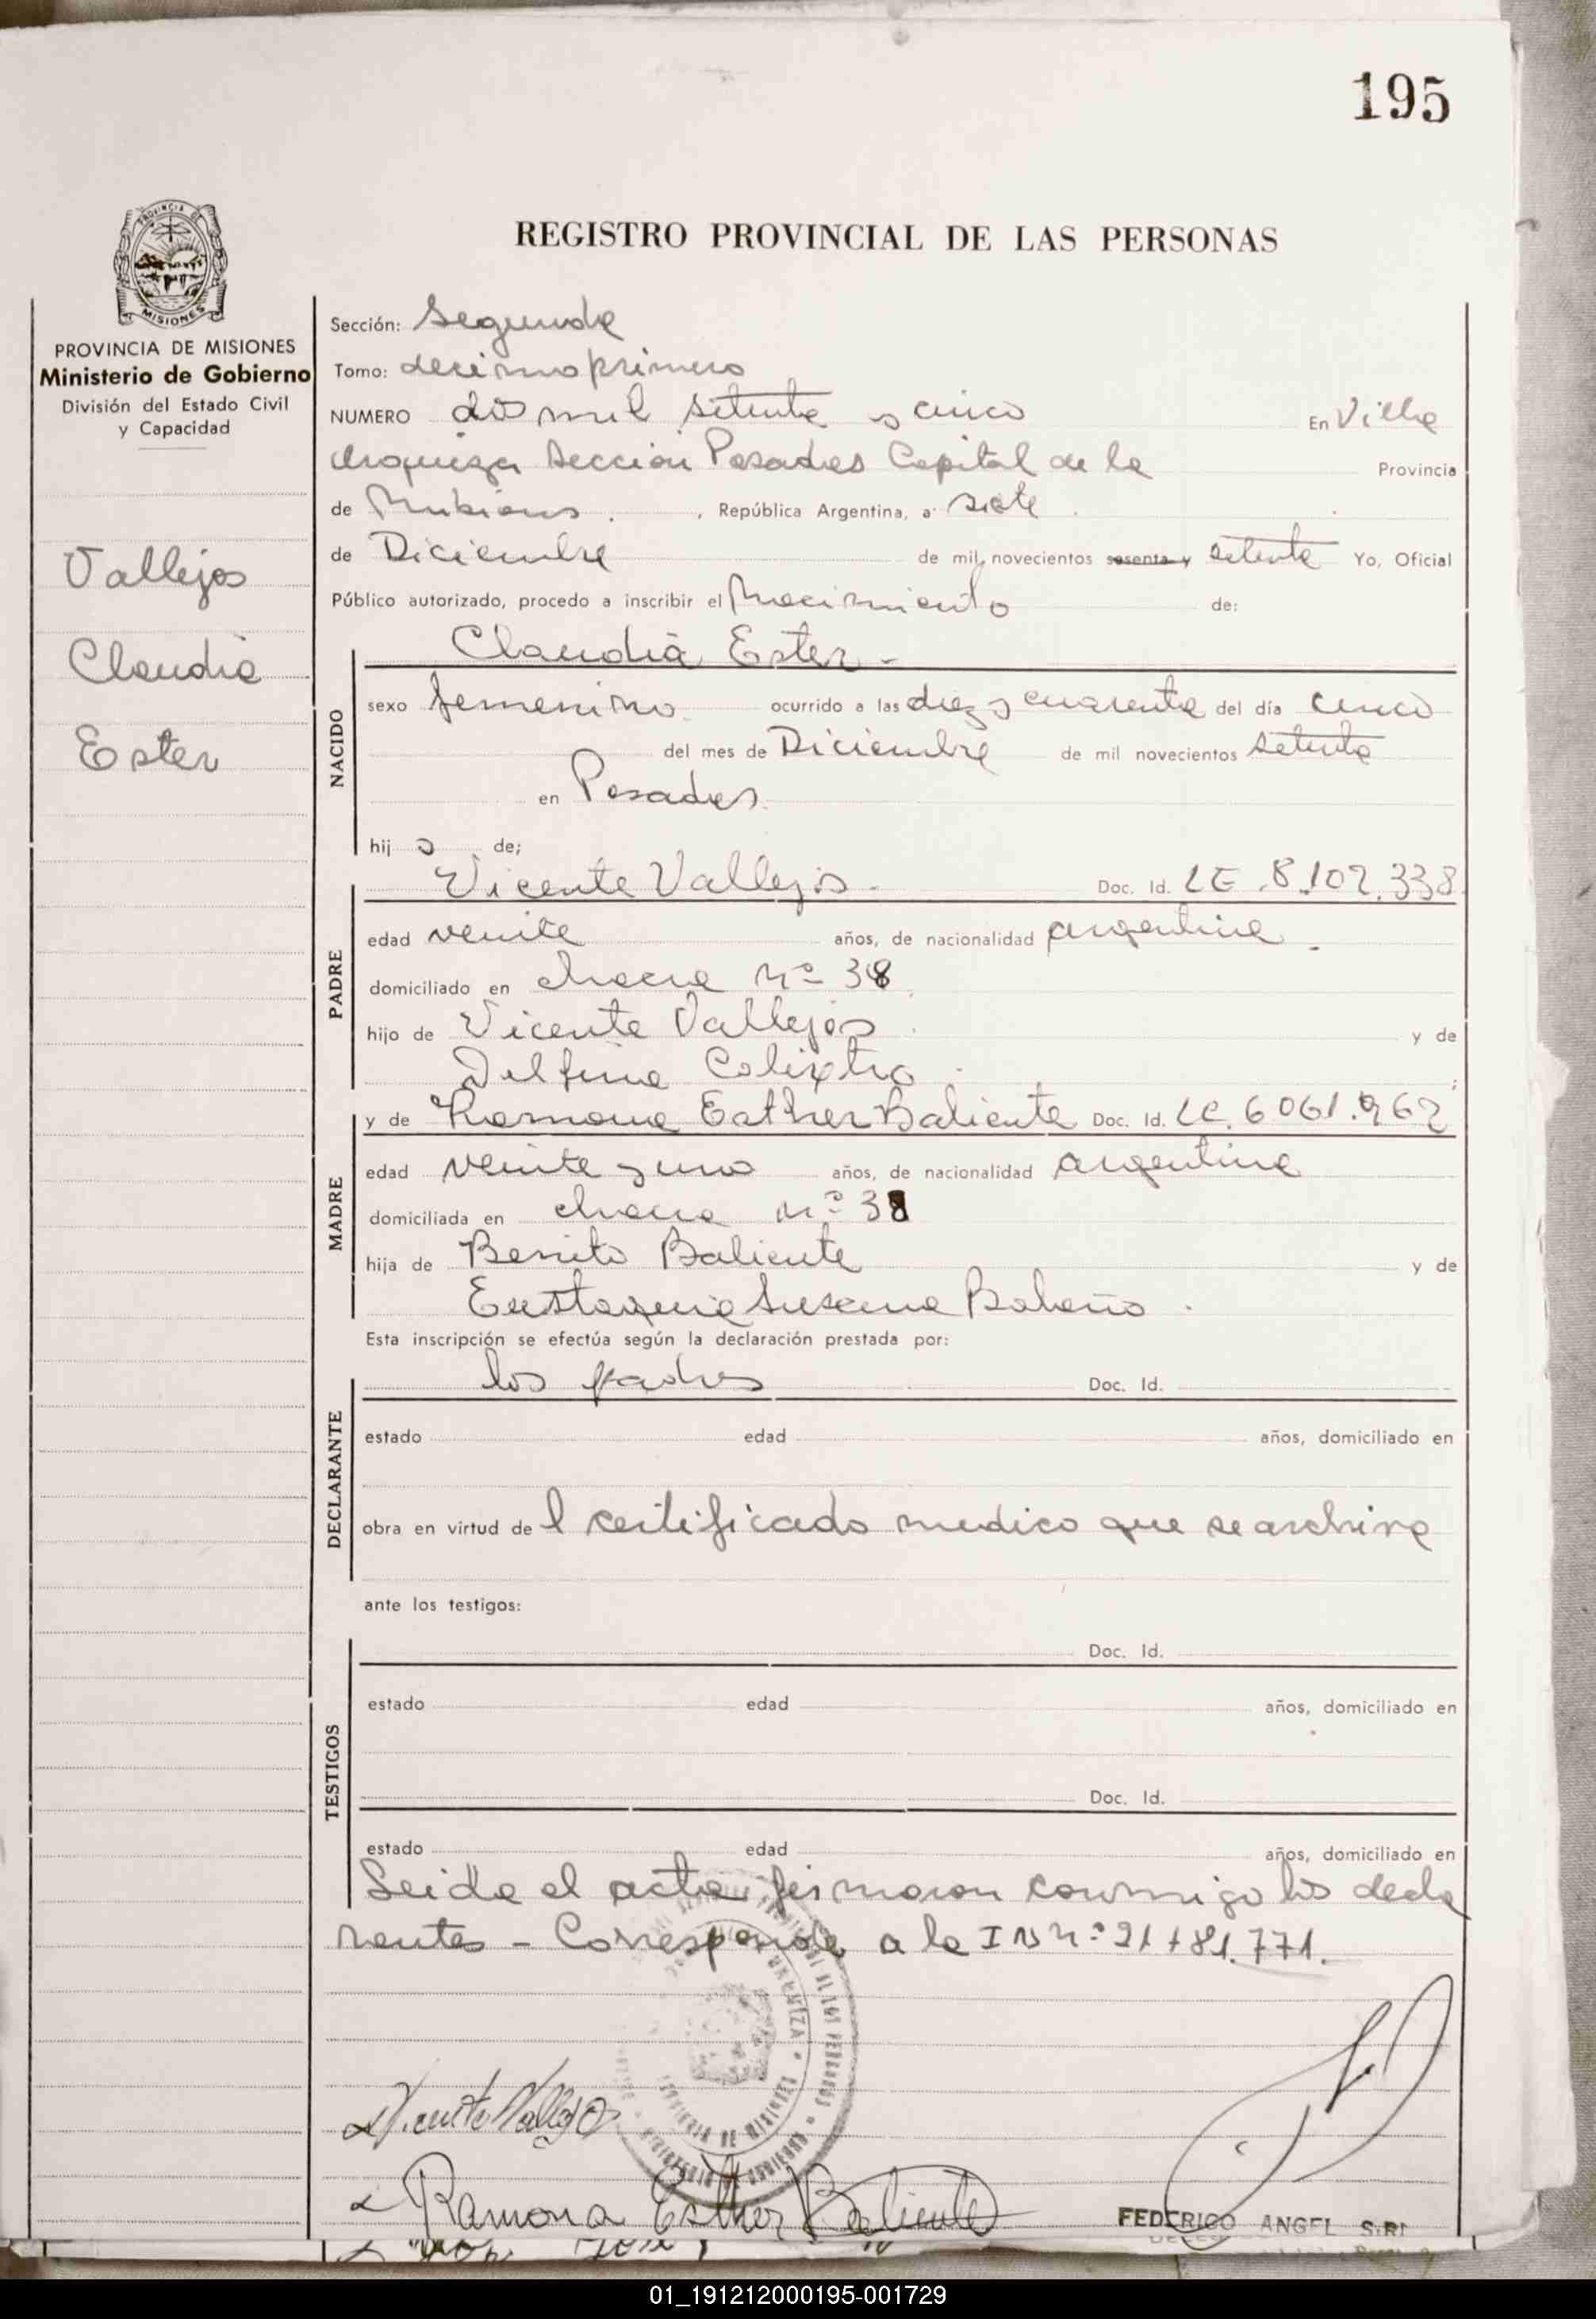 195
REGISTRO PROVINCIAL DE LAS PERSONAS
PROVINCIA DE
MISIONES
PROVINCIA DE MISIONES
Ministerio de Gobierno
División del Estado Civil
y Capacidad
Vallejos
Claudia
Ester
Sección: Segunda
Tomo: decimo primero
NUMERO dos mil setenta y cinco En Villa
Urquiza Sección Posadas Capital de la Provincia
de Misiones. , República Argentina, a siete
de Diciembre de mil novecientos sesenta y setenta Yo, Oficial
Público autorizado, procedo a inscribir el Nacimiento de:
Claudia Ester -
NACIDO
sexo femenino ocurrido a las diez y cuarenta del día cinco
del mes de Diciembre de mil novecientos setenta
en Posadas.
hij a de;
Vicente Vallejos - Doc. Id. LE .8.102.338
PADRE
edad veinte años, de nacionalidad argentina -
domiciliado en chacra Nº 38
hijo de Vicente Vallejos y de
Delfina Calixtro ;
MADRE
y de Ramona Esther Baliente Doc. Id. LC. 6061.962
edad veinte y uno años, de nacionalidad argentina
domiciliada en chacra nº 38
hija de Benito Baliente y de
Eustaquia Susana Bolaño .
Esta inscripción se efectúa según la declaración prestada por:
los padres Doc. Id.
DECLARANTE
estado edad años, domiciliado en
obra en virtud de l certificado medico que se archiva
ante los testigos:
Doc. Id.
TESTIGOS
estado edad años, domiciliado en
Doc. Id.
estado edad años, domiciliado en
Leida el acta firmaron conmigo los decla
rantes - Corresponde a la IN nº 21 + 81.771.
Vicente Vallejos
Ramona Esther Baliente
FEDERICO ANGEL
01_191212000195-001729